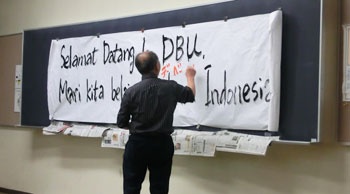 Selamat Datang DBU,
Mari kita Indonesia